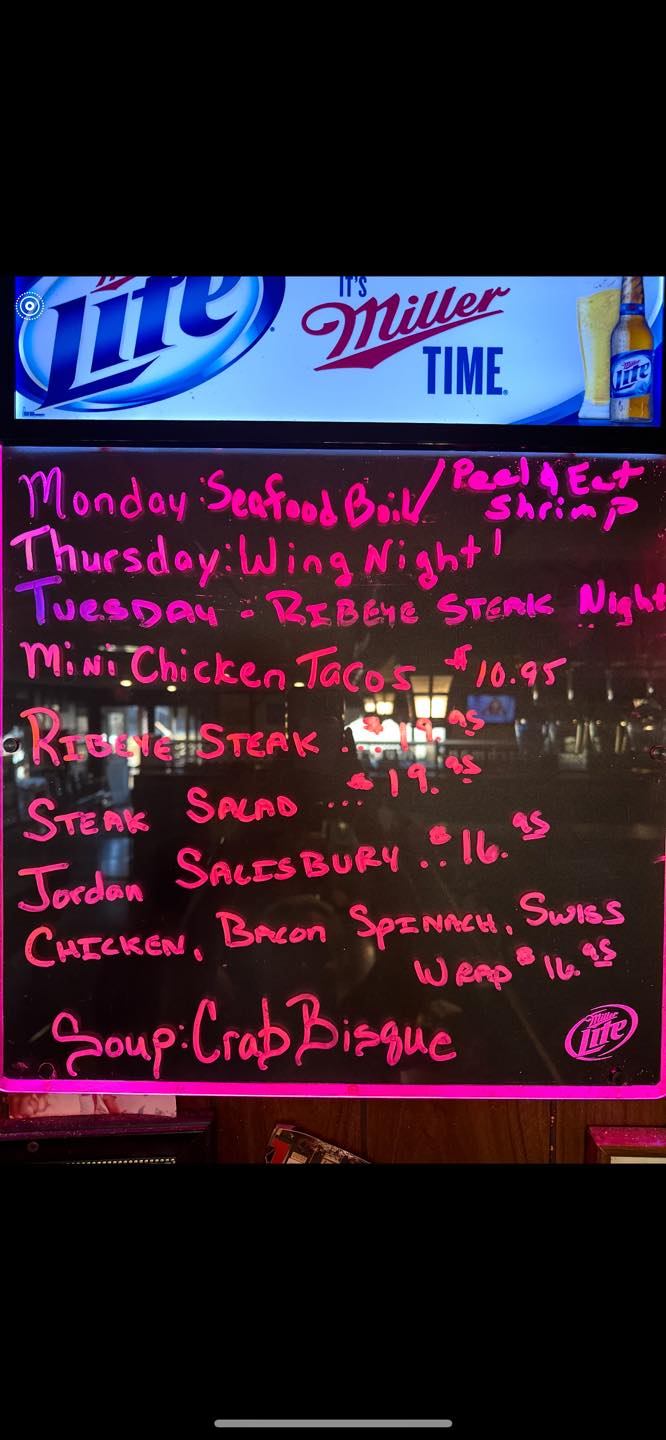 Lite
IT'S
Miller
TIME
Lite
Monday: Seafood Boil / Peel & Eat
Shrimp
Thursday: Wing Night!
TUESDAY - RIBEYE STEAK Night
Mini Chicken Tacos $10.95
RIBEYE STEAK ... $19.95
STEAK SALAD ... $19.95
Jordan SALISBURY .. $16.95
CHICKEN, BACON SPINACH, SWISS
WRAP $16.95
Soup: Crab Bisque
Miller
Lite